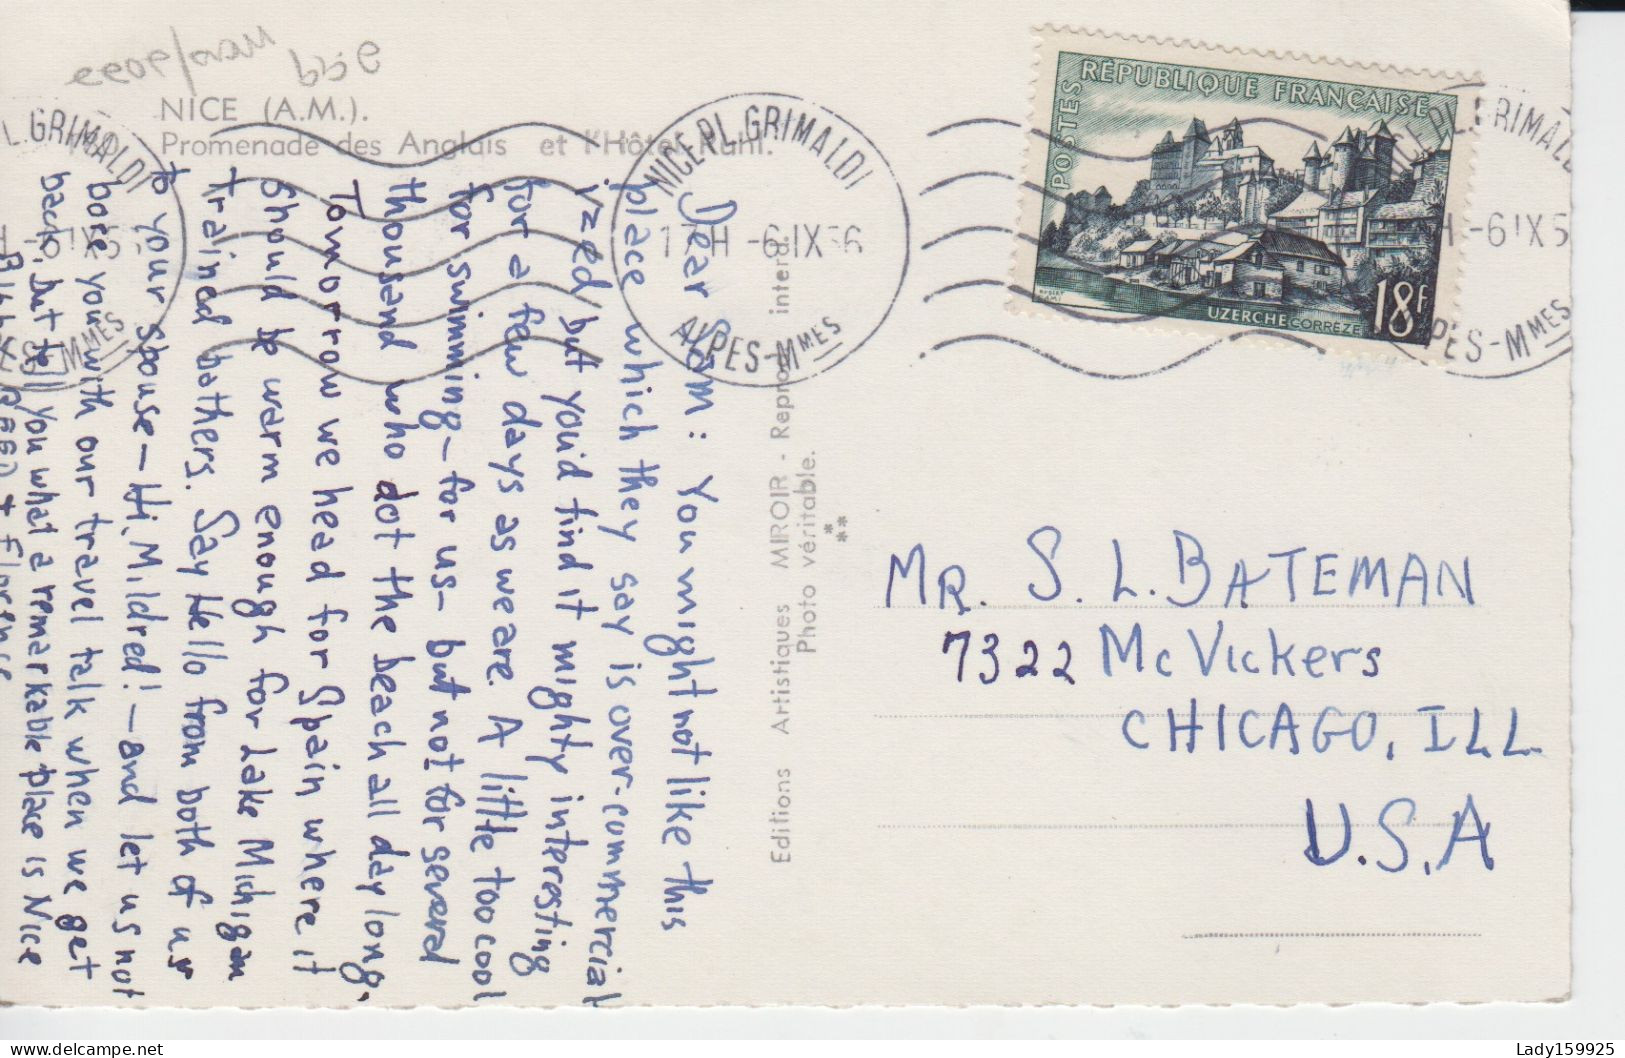 NICE (A.M.).
Promenade des Anglais et l'Hôtel Ruhl.
Dear Slom: You might not like this
place which they say is over-commercial
ized, but you'd find it mighty interesting
for a few days as we are. A little too cool
for swimming - for us - but not for several
thousand who dot the beach all day long.
Tomorrow we head for Spain where it
should be warm enough for Lake Michigan
trained bathers. Say Hello from both of us
to your spouse - Hi, Mildred! - and let us not
bore you with our travel talk when we get
back, but tell you what a remarkable place is Nice
+ Florence
Editions Artistiques MIROIR - Reprod. interd.
Photo véritable.
NICE PL. GRIMALDI
-6 IX 56
ALPES-Mmes
L. GRIMALDI
RÉPUBLIQUE FRANÇAISE
POSTES
UZERCHE CORRÈZE
18F
MR. S. L. BATEMAN
7322 McVickers
CHICAGO, ILL.
U.S.A
Lady159925